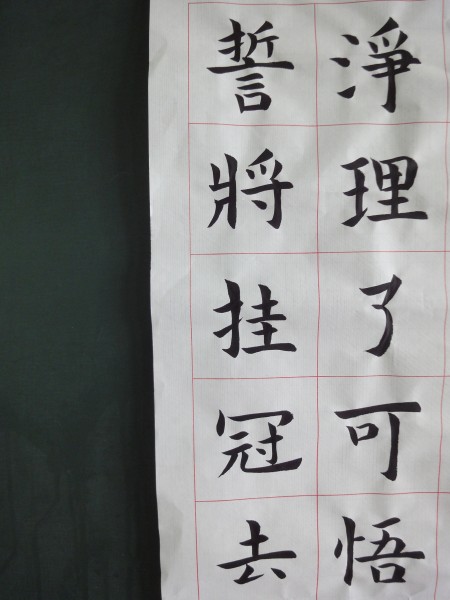 淨理了可悟
誓將挂冠去